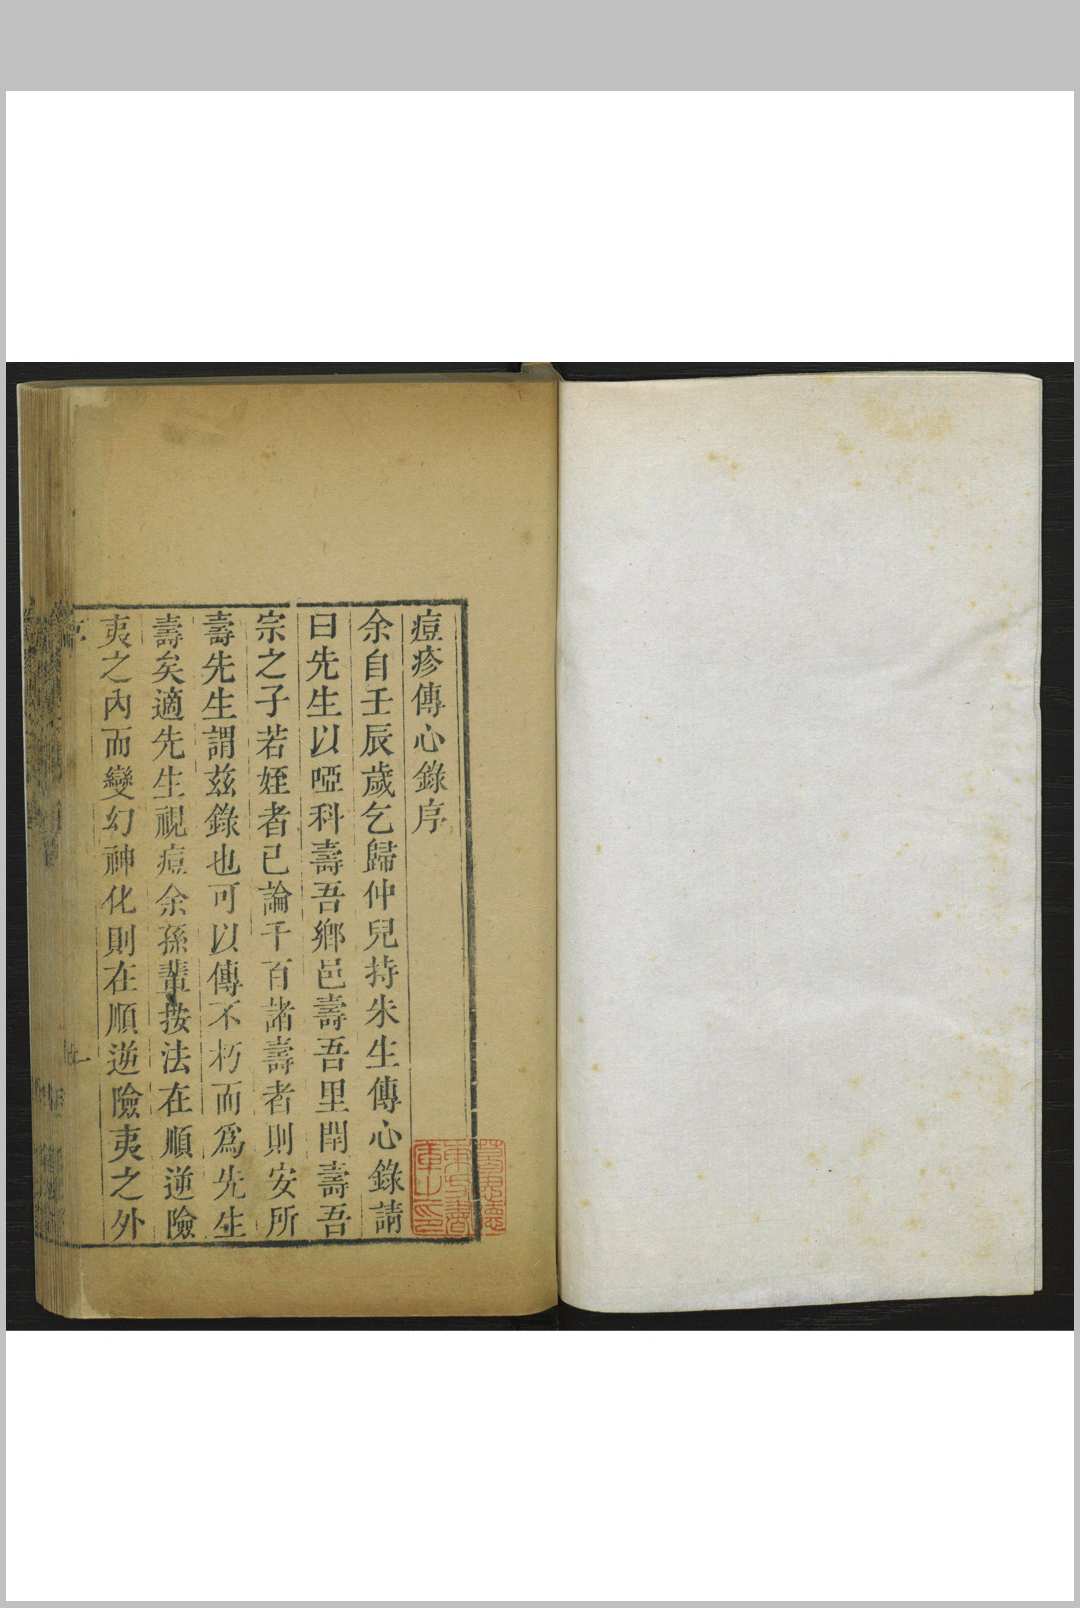 痘疹傳心錄序
余自壬辰歲乞歸仲兒持朱生傳心錄請
曰先生以啞科壽吾鄉邑壽吾里閈壽吾
宗之子若姪者已論千百諸壽者則安所
壽先生謂茲錄也可以傳不朽而爲先生
壽矣適先生視痘余孫輩按法在順逆險
夷之內而變幻神化則在順逆險夷之外